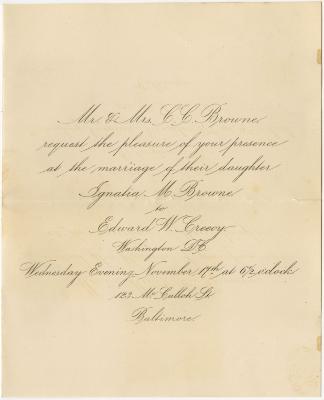 Mr. & Mrs. C. C. Browne
request the pleasure of your presence
at the marriage of their daughter
Ignatia M. Browne
to
Edward W. Creecy
Washington D.C.
Wednesday Evening, November 17th at 6½ o'clock
123 Mc. Culloh St
Baltimore